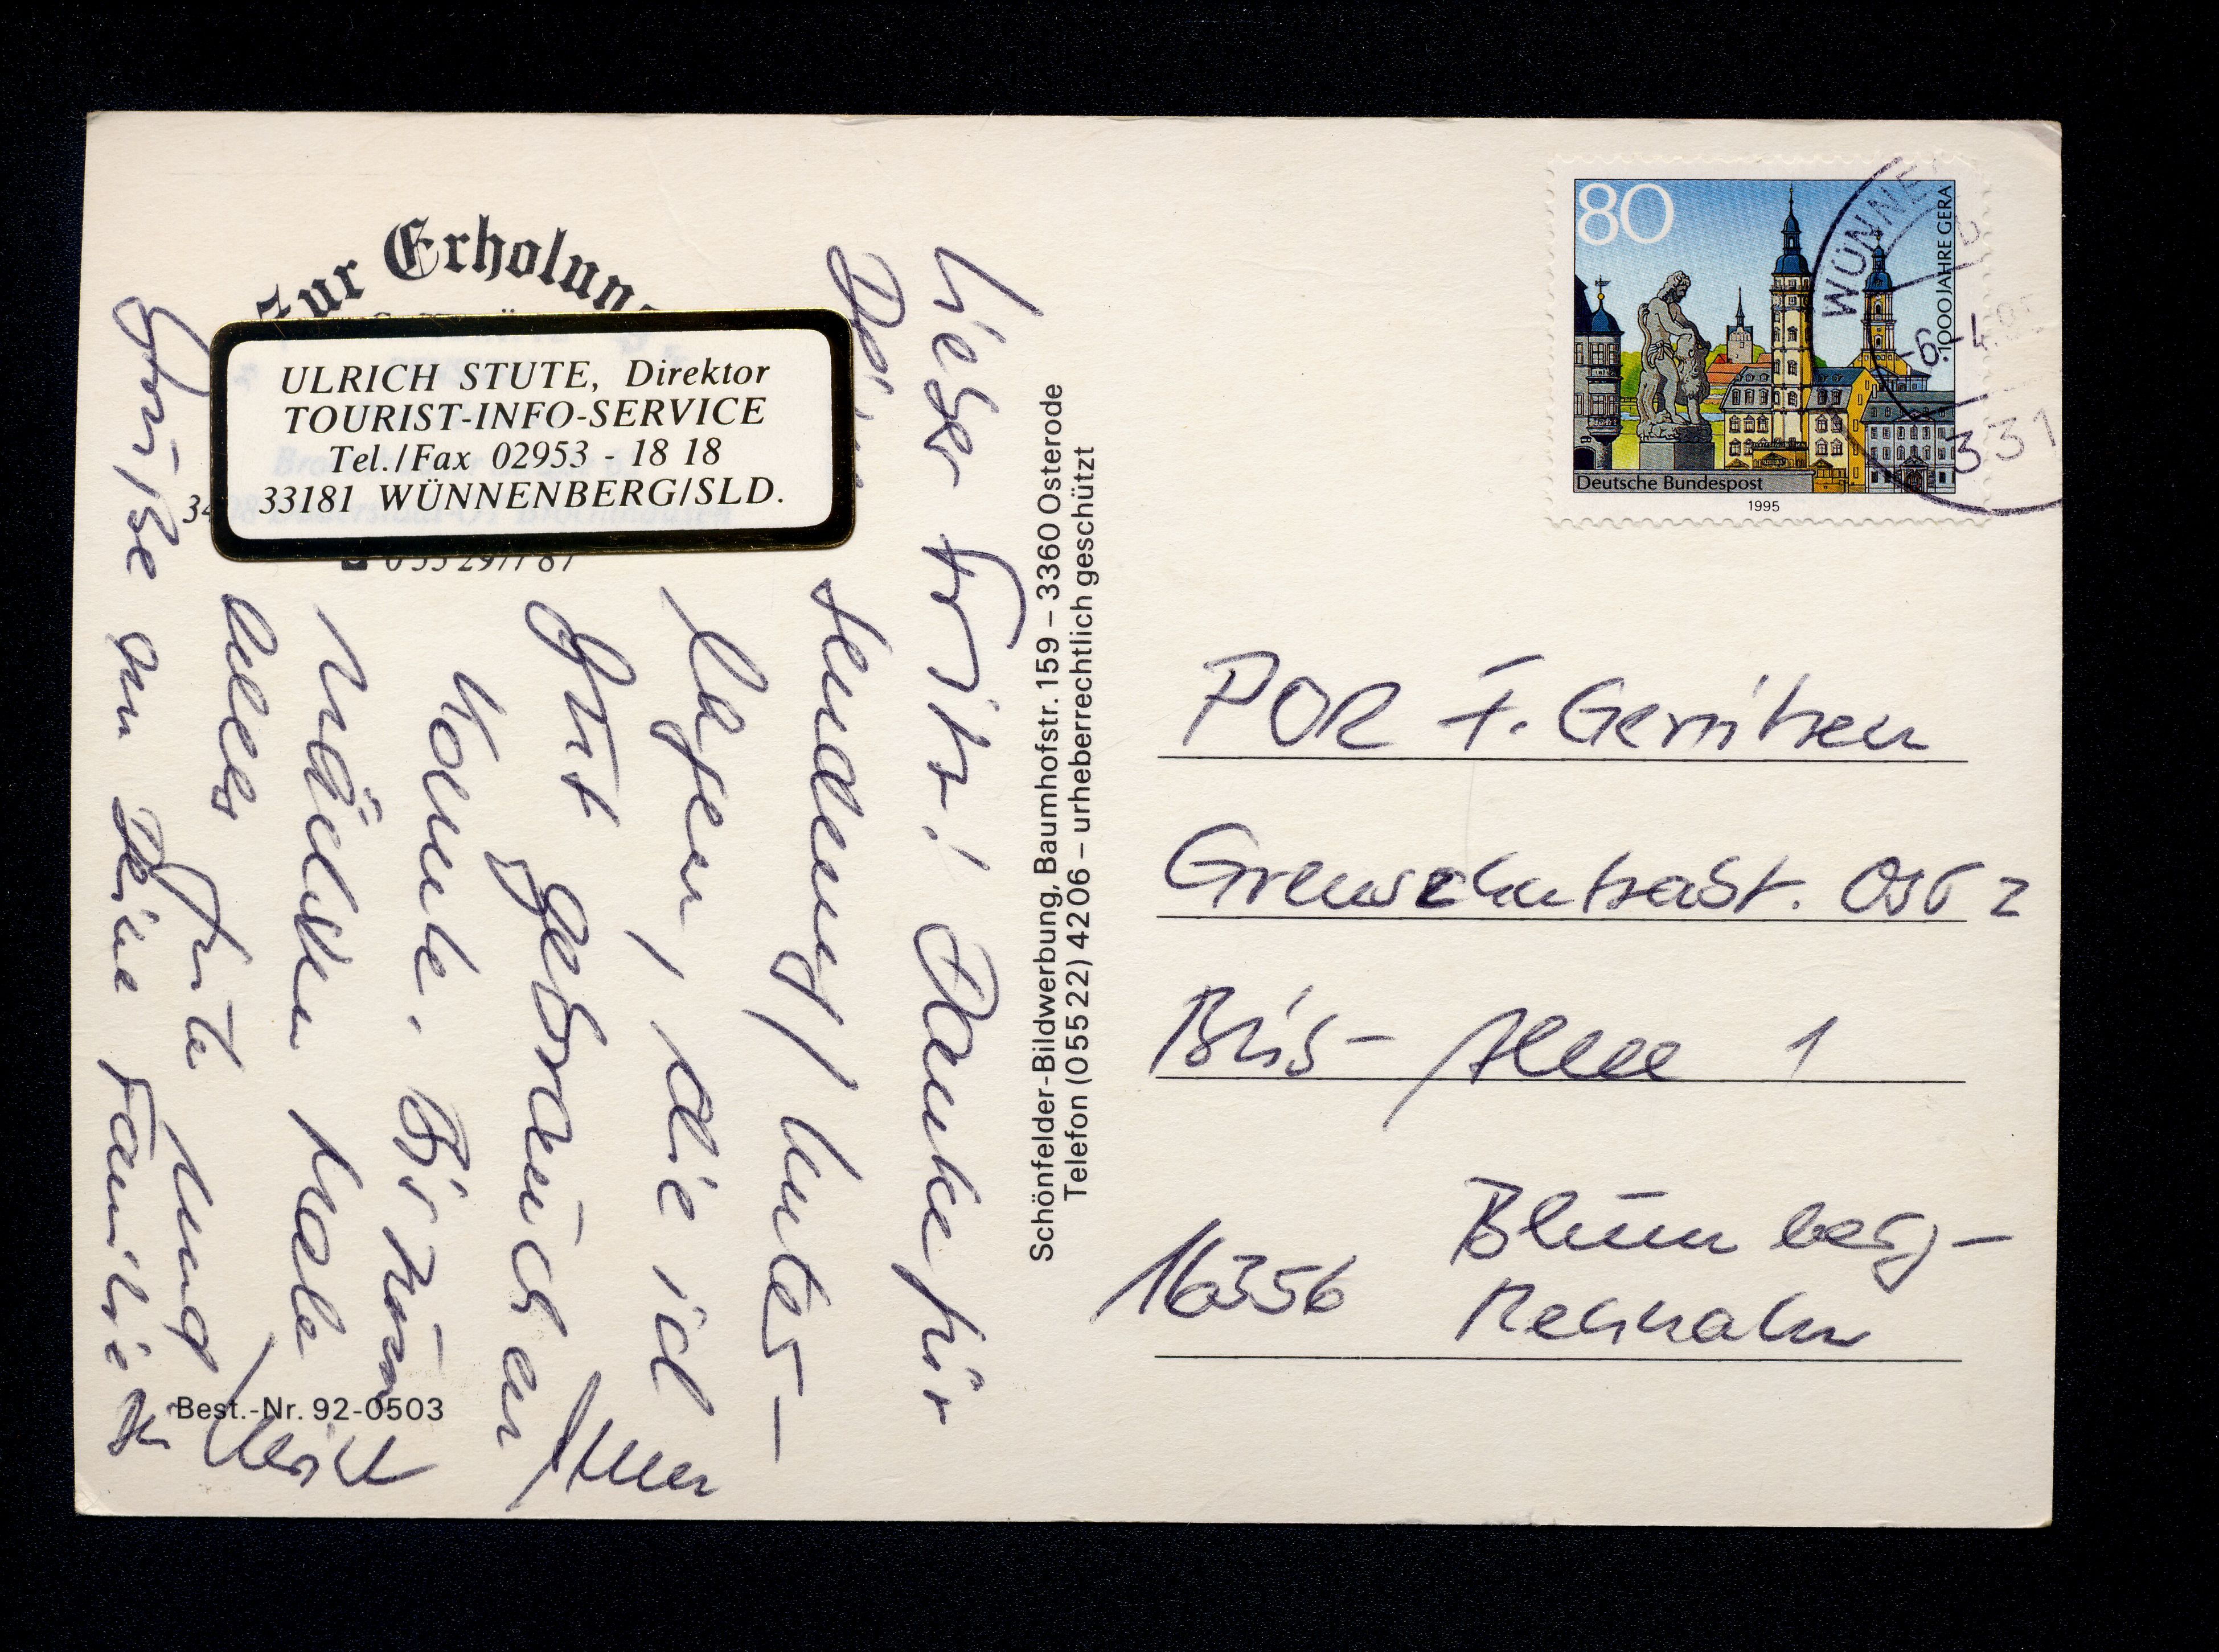 Zur Erholung
ULRICH STUTE, Direktor
TOURIST-INFO-SERVICE
Tel./Fax 02953 - 18 18
33181 WÜNNENBERG/SLD.
Lieber Fritz! Danke für
Deine Sendung / Unter-
lagen, die ich
gut gebrauchen
konnte. Bis zum
nächsten Male
alles Gute und
Grüße an Deine Familie
Ulrich
Best.-Nr. 92-0503
Schönfelder-Bildwerbung, Baumhofstr. 159 – 3360 Osterode
Telefon (05522) 4206 – urheberrechtlich geschützt
80
1000 JAHRE GERA
Deutsche Bundespost
1995
WÜNNE
-6.-4
331
POR F. Gerritzen
Grenzschutzabt. Ost 2
Allee 1
16356 Blumberg-
Rehhahn